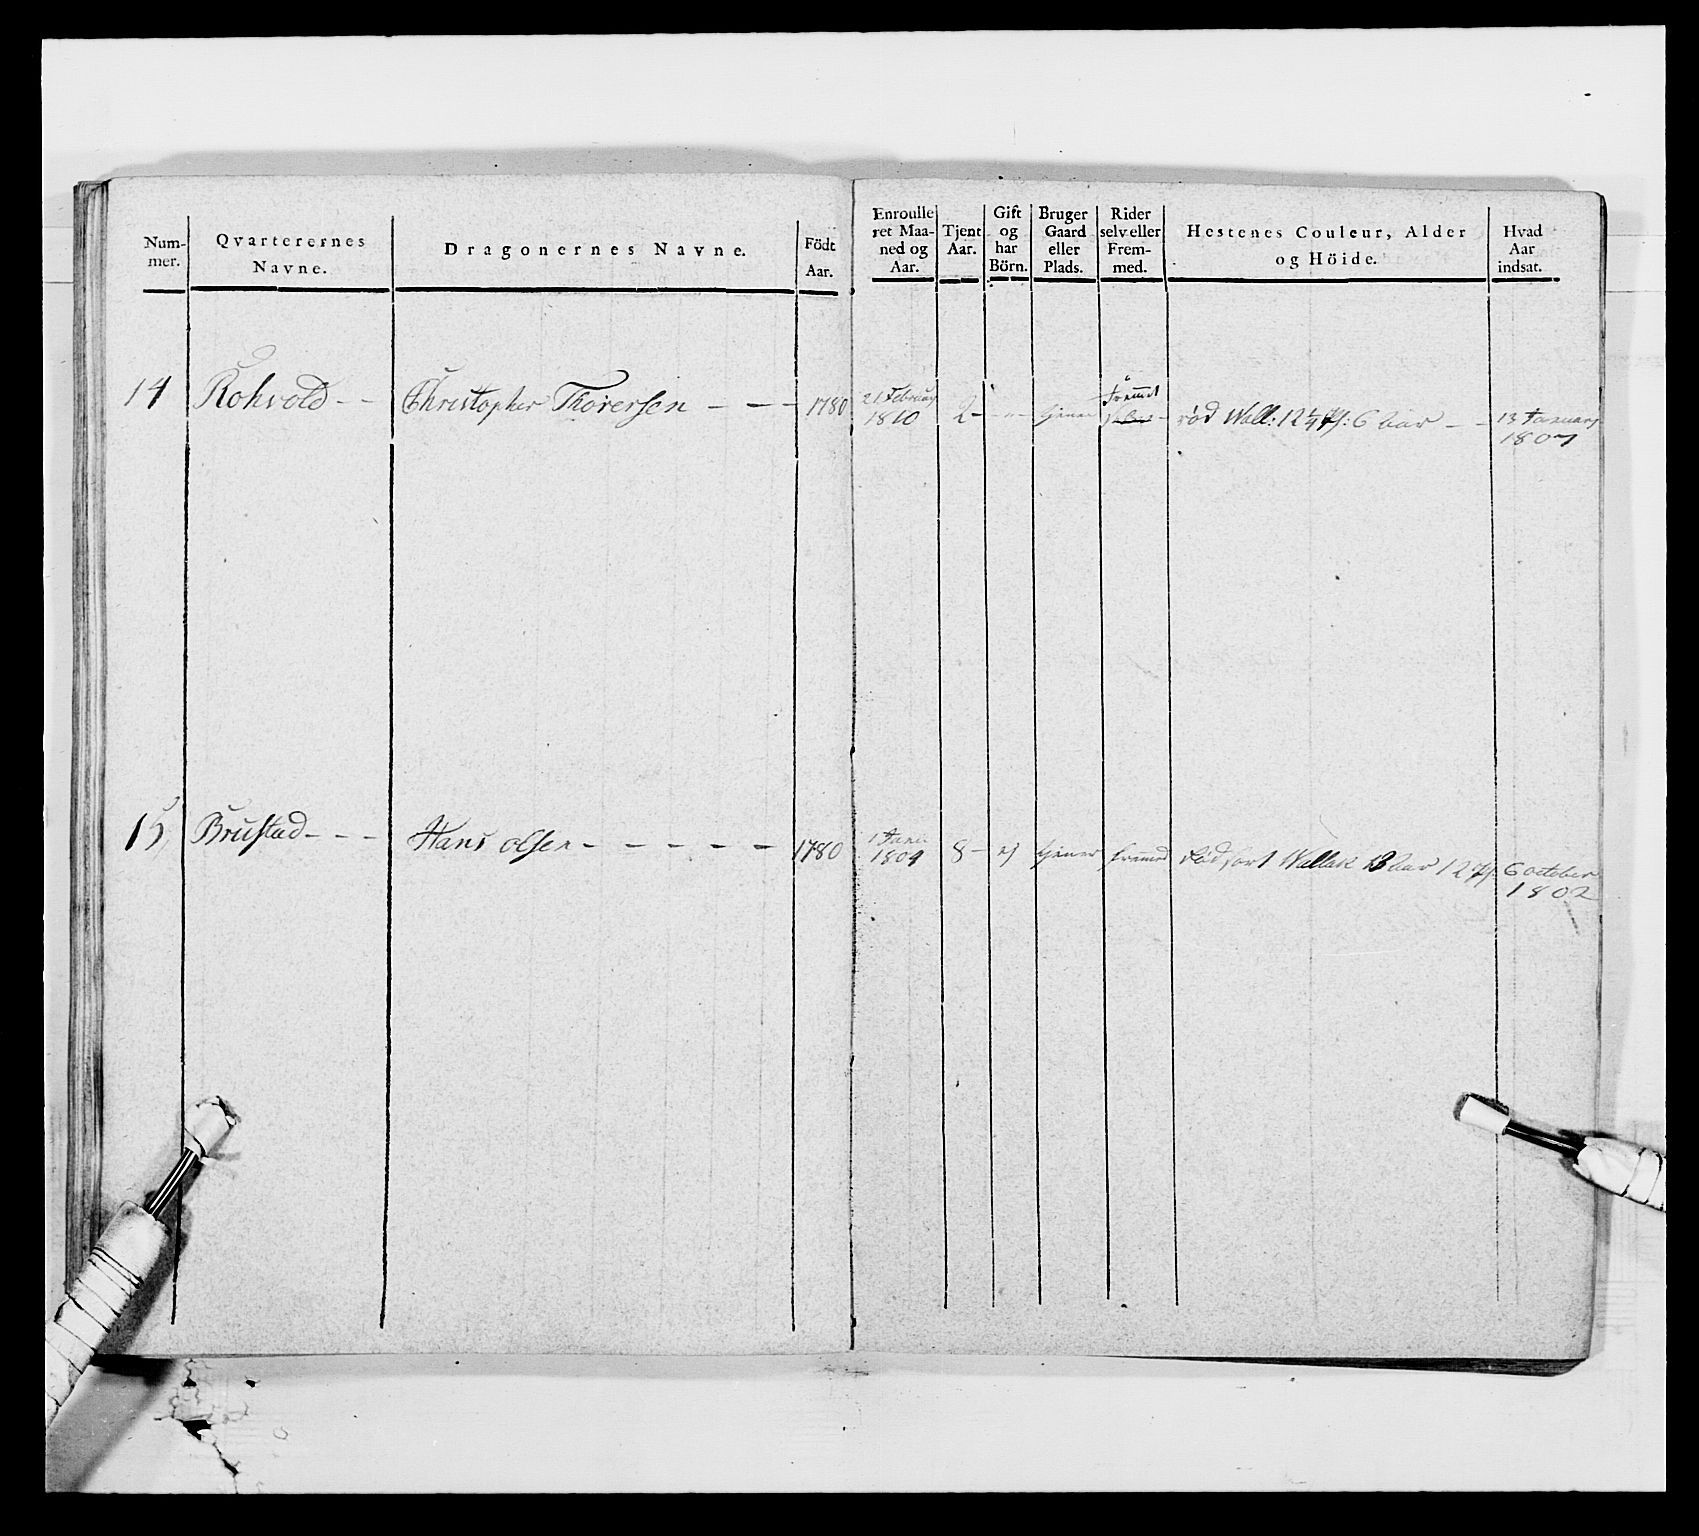 Num-
mer.
Qvarterernes
Navne.
Dragonernes Navne.
Födt
Aar.
Enroulle
ret Maa-
ned og
Aar.
Tjent
Aar.
Gift
og
har
Börn.
Bruger
Gaard
eller
Plads.
Rider
selv eller
Frem-
med.
Hestenes Couleur, Alder
og Höide.
Hvad
Aar
indsat.
14 Rohvold - - Christopher Thoresen - - - 1780
21 Februar
1810
2 - - tjener
fremmet
rød Wall: 12 1/4 q: 6 aar - -
13 Januarj
1807
15, Brustad - - - Hans olsen - - - - - 1780
1 Janu:
1804
8 - ej tjener fremed rødsort Wallak 13 aar 12 q:
6 october
1802